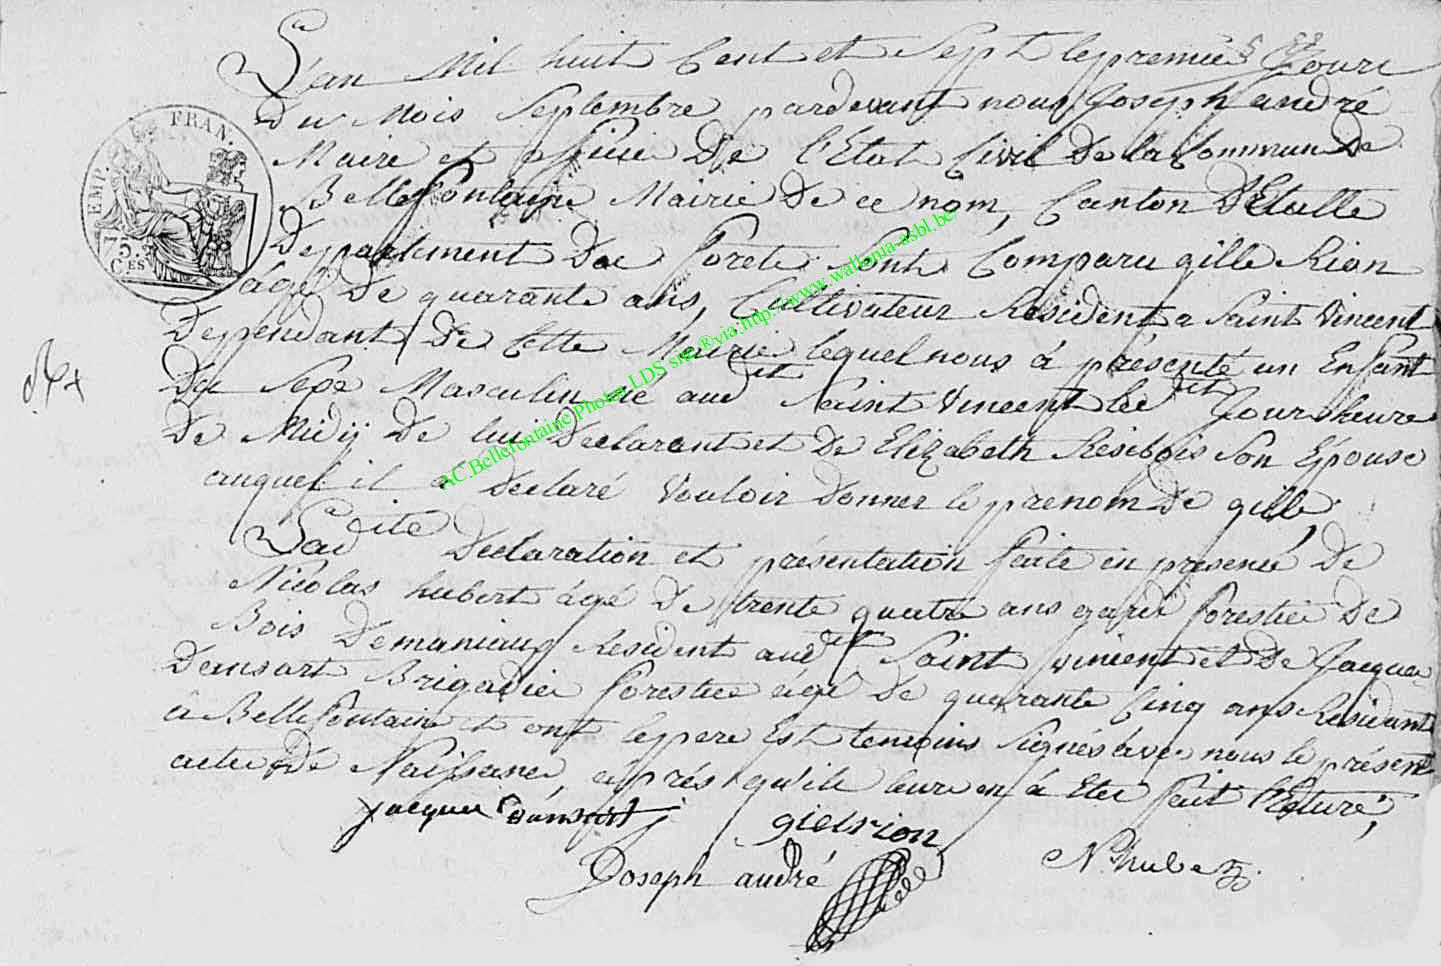 L'an Mil huit Cent et Sept le premié Jour
Du Mois Septembre pardevant nous Joseph andré
Maire et officié De l'Etat Civil De la Commun De
Bellefontaine Mairie De ce nom, Canton D'Etalle
Departement Des Forets Sont Comparu gille Rion
âgé De quarante ans, Cultivateur Résident a Saint Vincent
Dependant De Cette Mairie lequel nous à présenté un Enfant
Du Sexe Masculin né audit Saint Vincent ledit Jour heure
De Midij De lui Declarant et De Elizabeth Résibois Son Epouse
auquel il a Declaré Vouloir Donner le prenom De gille,
Ladite Declaration et présentation faite en presence De
Nicolas hubert âgé De trente quatre ans garde forestié De
Bois Demaniaux Résident audit Saint Vincent et De Jacque
Dansart Brigadié forestié âgé De quarante Cinq ans Résident
à Bellefontaine et ont le pere Est temoins Signés avec nous le présent
acte De Naissance, après qu'ile leure en à Eter fait lecture,
Jacque Dansart
giel rion
Joseph andré
N hubert
EMP. FRAN.
75.
CES
A.C.Bellefontaine Photos LDS site®via:http://www.wallonia-asbl.be/